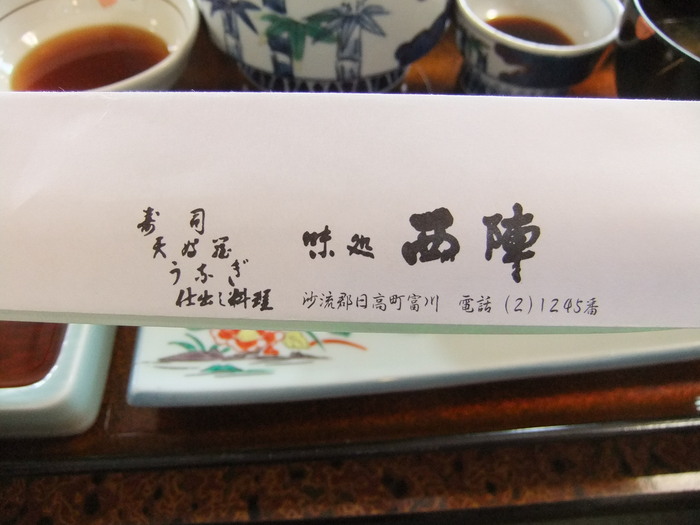 寿司
天婦羅
うなぎ
仕出し料理
味処 西陣
沙流郡日高町富川 電話(2)1245番